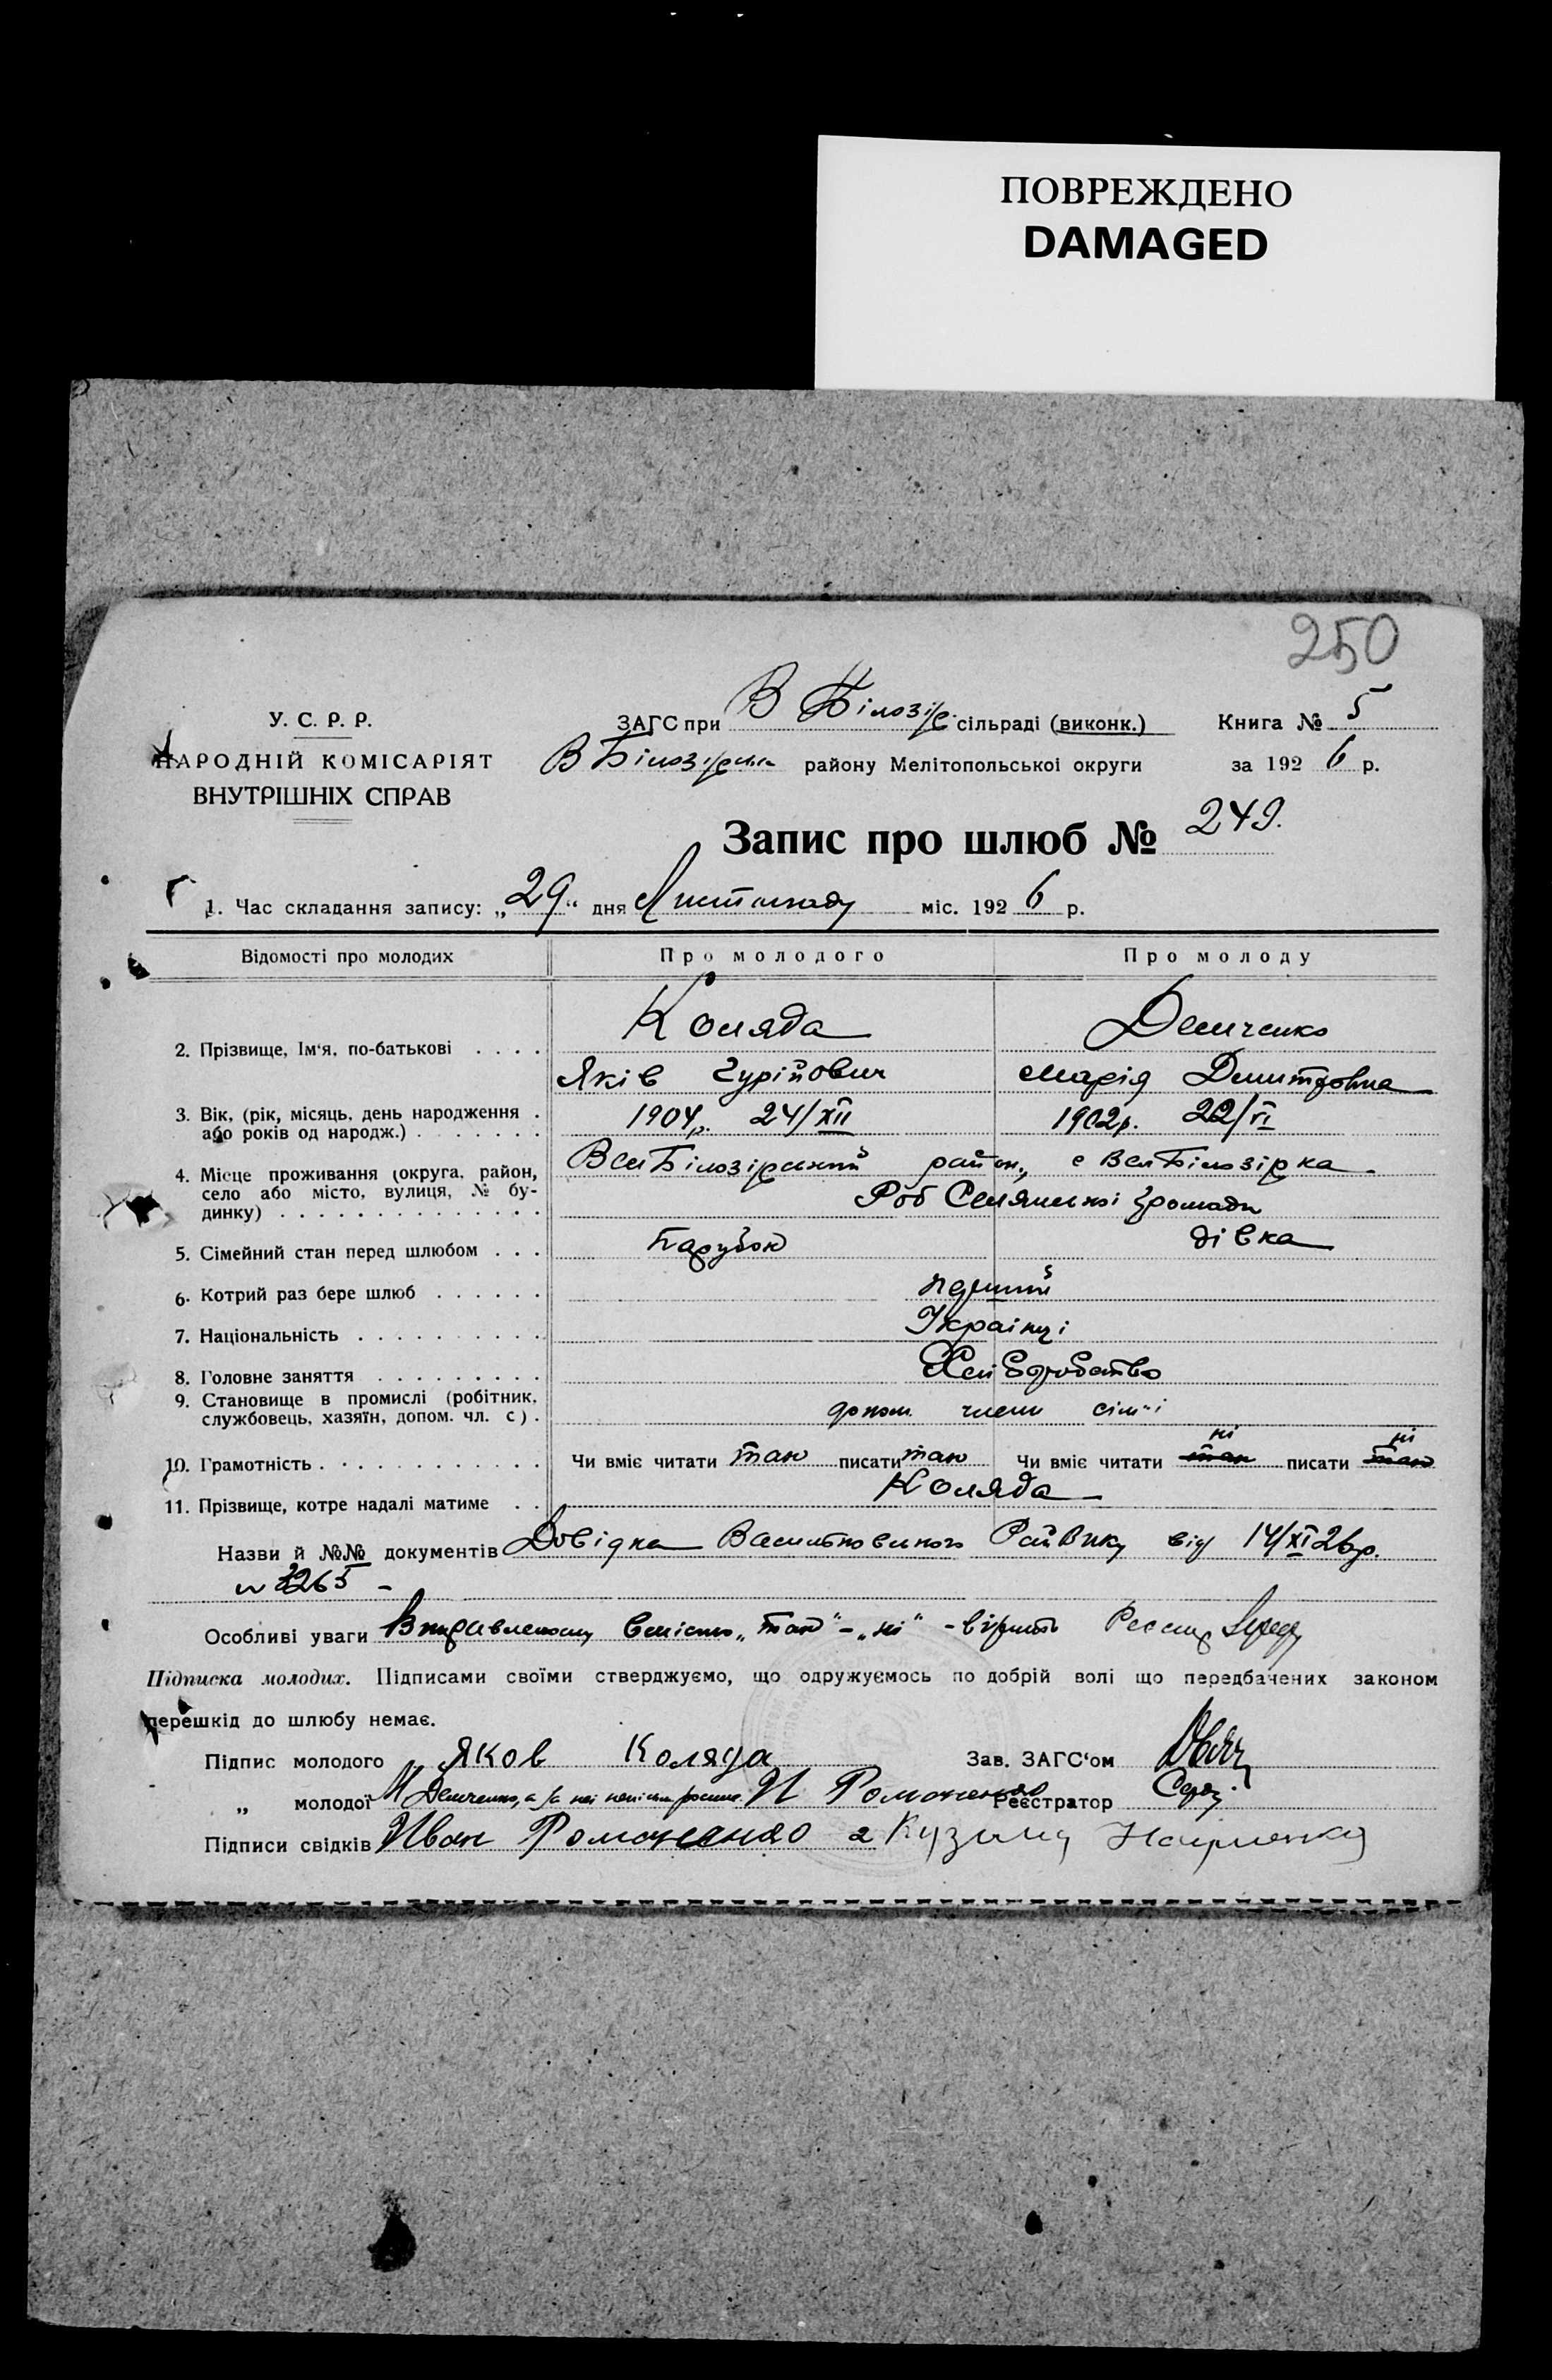 ПОВРЕЖДЕНО
DAMAGED
250
У. С. Р. Р.
НАРОДНІЙ КОМІСАРІЯТ
ВНУТРІШНІХ СПРАВ
ЗАГС при В Білозір. сільраді (виконк.)
В Білозірськ району Мелітопольскої округи
Книга № 5
за 192 6 р.
Запис про шлюб № 249.
1. Час складання запису: „29“ дня Листопаду міс. 192 6 р.
Відомості про молодих Про молодого Про молоду
2. Прізвище, Ім'я, по-батькові . . . . Коляда Демченко
Яків Гурійович Марія Дмитровна
3. Вік, (рік, місяць, день народження . 1904р. 24/XII 1902р. 22/VI
або років од народж.) . . . . . . .
4. Місце проживання (округа, район, Вел Білозірський район, с Вел Білозірка
село або місто, вулиця, № бу- Роб Селянської Громади
динку) . . . . . . . . . . . . . .
5. Сімейний стан перед шлюбом . . . Парубок дівка
6. Котрий раз бере шлюб . . . . . . перший
7. Національність . . . . . . . . . . Українці
8. Головне заняття . . . . . . . . . Хліборобство
9. Становище в промислі (робітник,
службовець, хазяїн, допом. чл. с). допом. члени сім'ї
10. Грамотність . . . . . . . . . . . . Чи вміє читати так писати так Чи вміє читати так ні писати так ні
11. Прізвище, котре надалі матиме . . Коляда
Назви й №№ документів Довідка Василівського РайВику від 14/XI 26р.
№ 3265 –
Особливі уваги Виправленому вмісто „так" – „ні" – вірить
Підписка молодих. Підписами своїми стверджуємо, що одружуємось по добрій волі що передбачених законом
перешкід до шлюбу немає.
Підпис молодого Яков Коляда Зав. ЗАГС'ом
„ молодої М Демченко, а за неї И Романенко Реєстратор
Підписи свідків Иван Романенко 2 Кузьма